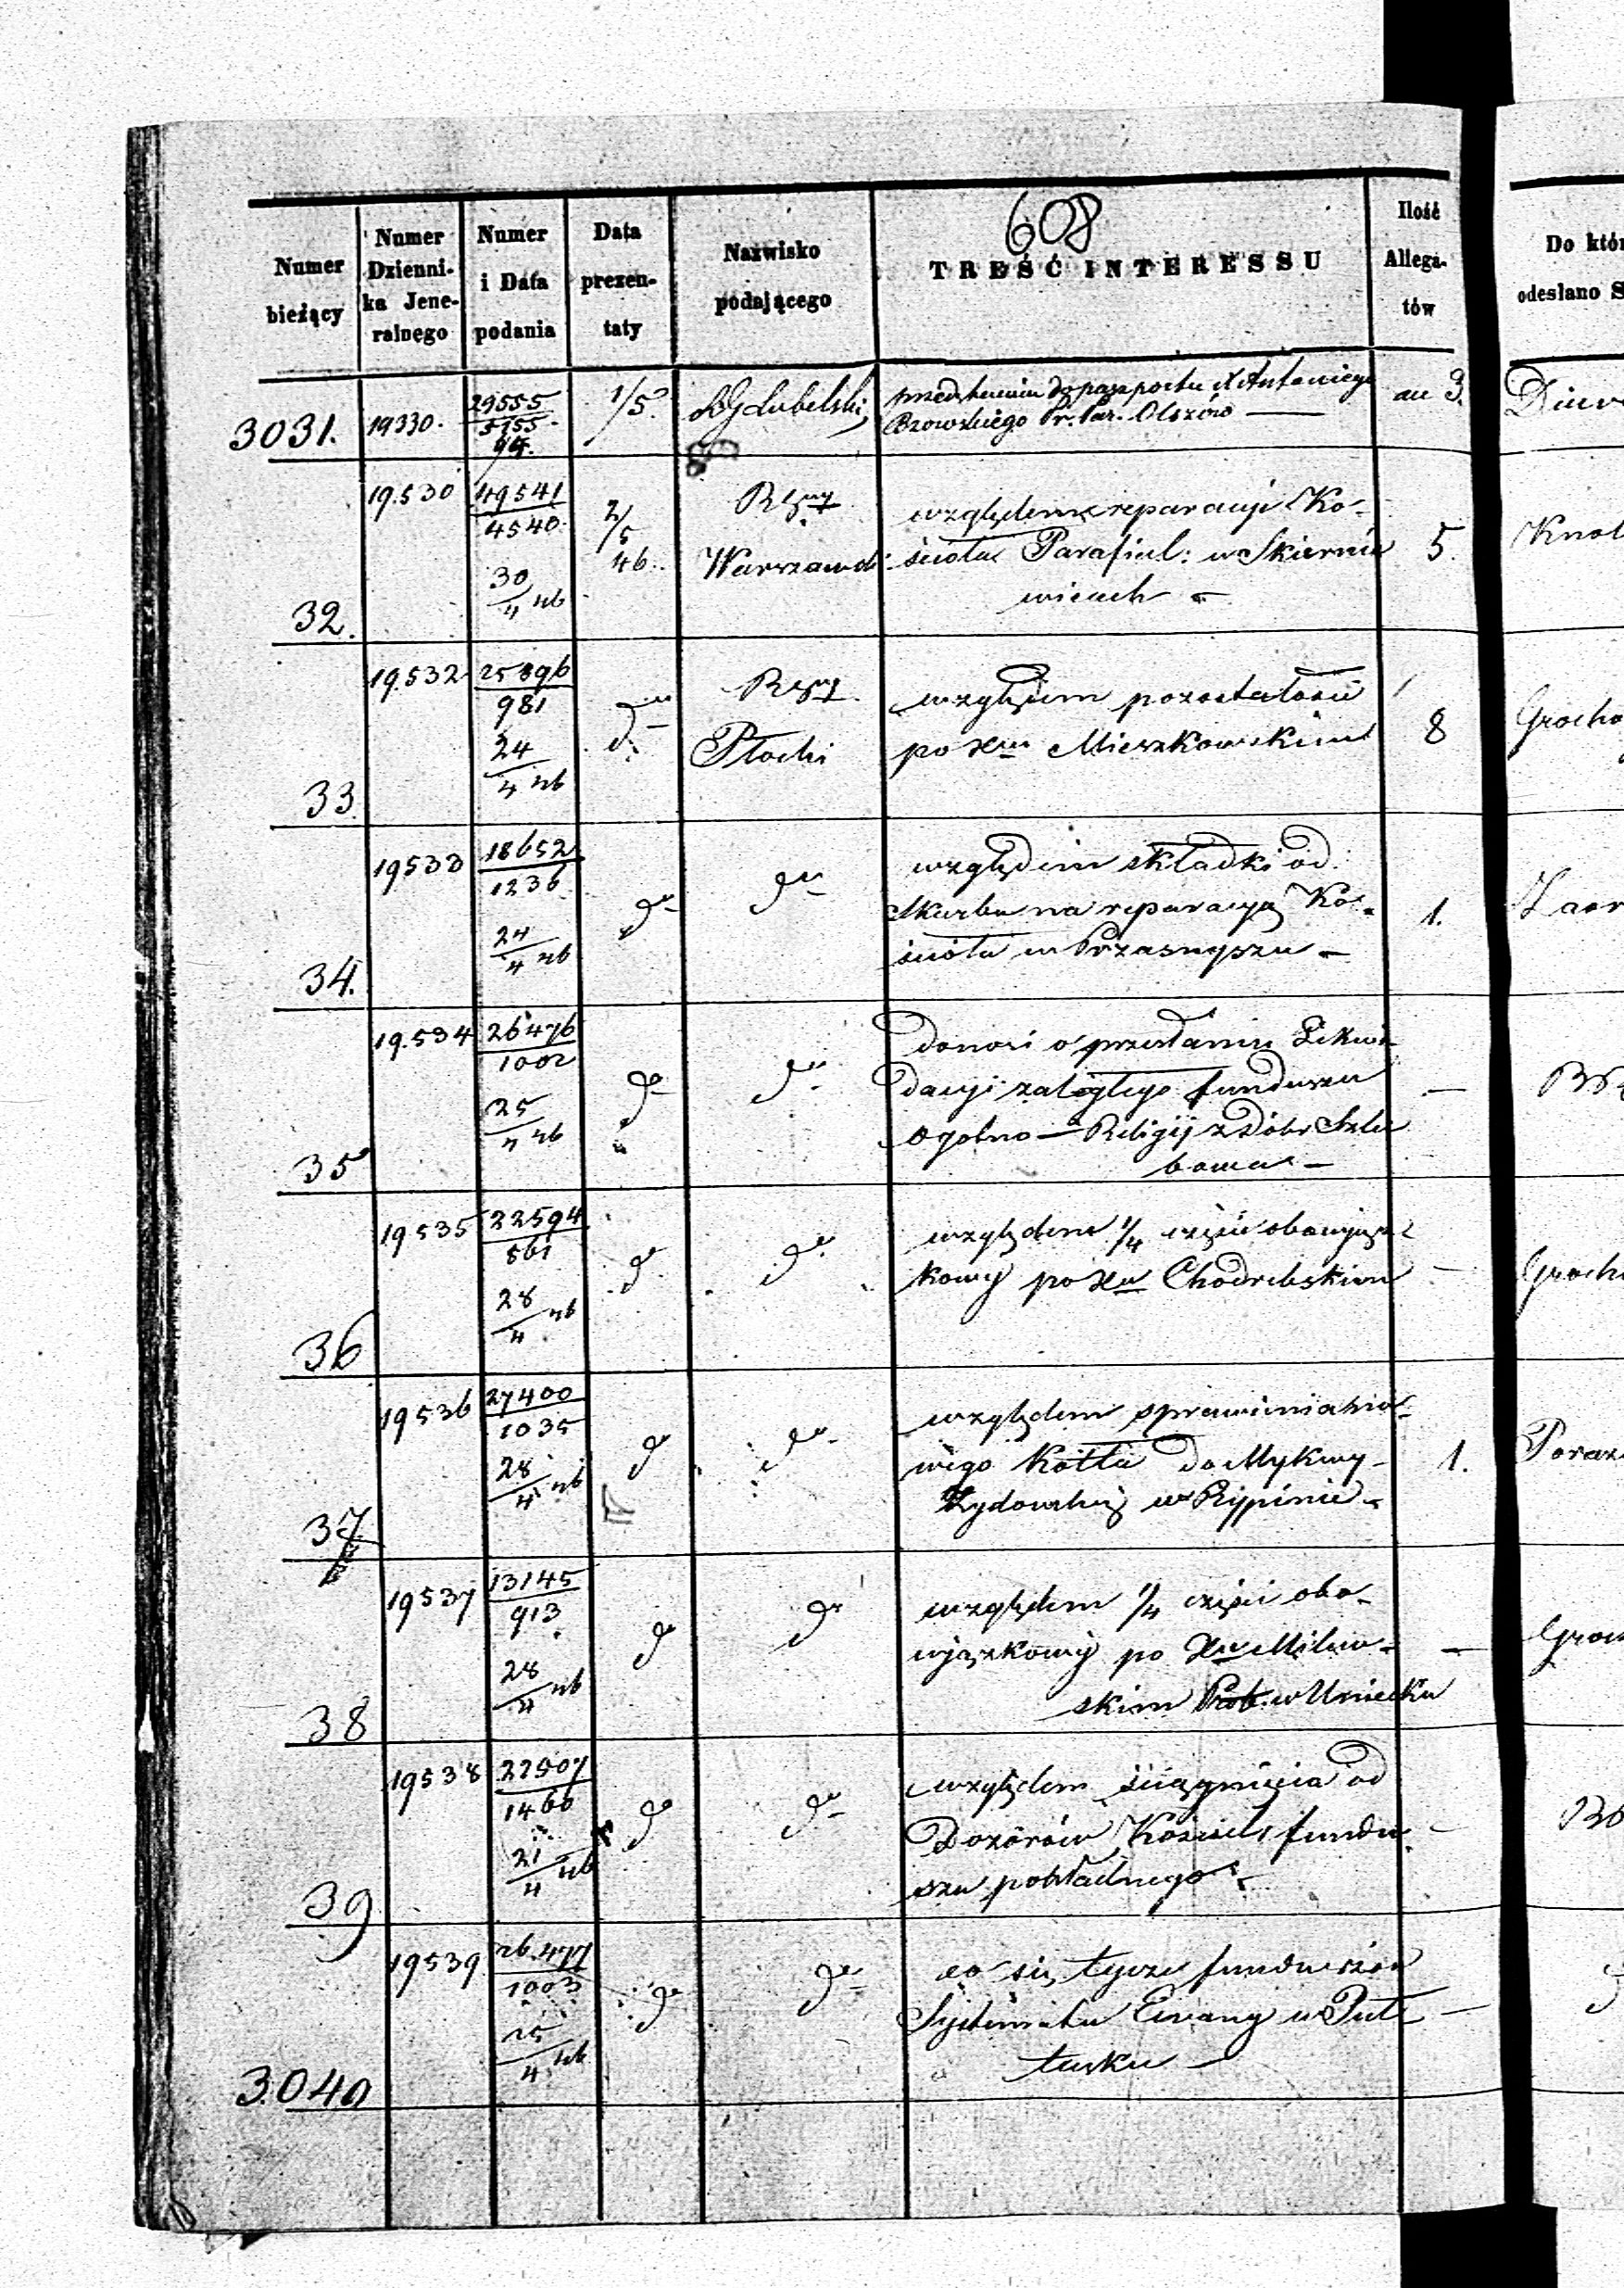 608
Numer bieżący
Numer Dzienni-
ka Jene-
ralnego
Numer i Data podania
Data prezen-
taty
Nazwisko podającego
TREŚĆ INTERESSU
Ilość Allega-
tów
Do któr
odesłano S
3031. 19330. 29555 1/5. RG Lubelski au 3.
5155
94.
Pr. Par. Olszów —
19.530 49541
4540.
30
4 46
2/5
46.
Warszawski
względem reparacyi Ko-
ścioła Parafial: w Skiernie
wicach —
5.
32.
19.532 25896
981
24
4 46
do
Płocki
względem pozostałości
po Xdzu Mieszkowskim
8
Grocho
33.
19533 18652
1236
24
4 46
do
do
względem składki od
Skarbu na reparacyą Ko-
ścioła w Przasnyszu —
1.
34.
19.534 26476
1002
25
4 46
do
do
donosi o przesłaniu Likwi-
dacyi zaległego funduszu
ogolno — Religij z Dóbr Szle
bowa —
—
35
19535 22594
861
28
4 46
do
do
względem 1/4 części obowiąz-
kowej po Xdzu Chodubskim
—
Grocho
36
19536 27400
1035
28
4 46
do
do
względem sprawienia no-
wego Kotła do Mykwy
Żydowskiej w Rypinie —
1.
37
19537 13145
913
28
4 46
do
do
względem 1/4 części obo-
wjązkowej po Xdzu Milew-
skim Prob. w Uniecku
—
Groch
38
19538 22507
1460
21
4 46
do
do
względem ściągnięcia od
Dozorów Kościel. fundu-
szu pokładnego —
—
39
19539 26.477
1003
25
4 46
do
do
co się tycze funduszów
w Puł
tusku —
—
3.040